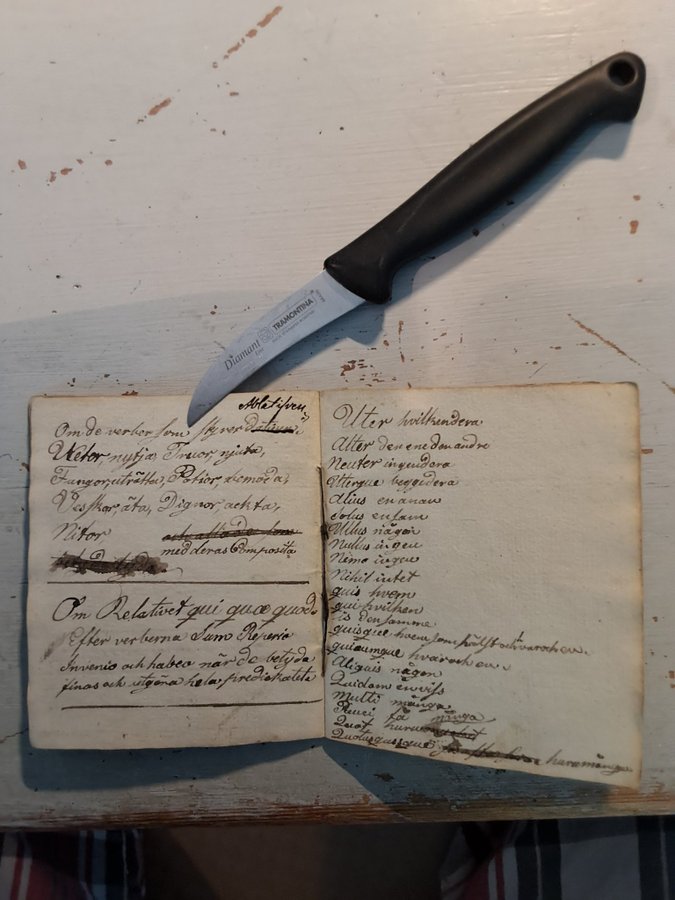 Diamant
TRAMONTINA
Ablatifven
Om de verber som styrer
Utor, nytja, Fruor, njuta,
Fungor, uträtta, Potior, bemöda,
Veskor äta, Dignor, ackta,
Nitor
med deras Composita
Om Relativet qui quæ quod
Efter verberna Sum Reperio
Invenio och habeo när de betyda
finas och utgöra hela predikatet
Uter hvilkendera
Alter den ene den andre
Neuter ingendera
Uterque beggidera
Alius en anan
solus ensam
Ullus någon
Nullus ingen
Nemo ingen
Nihil intet
quis hvem
qui hvilken
is densamme
quisque hvem som hälst och varoch en
quicumque hvar och en
Aliquis någon
Quidam en viss
Multi många
Pauci få många
Quot
Quotusquisque huru många